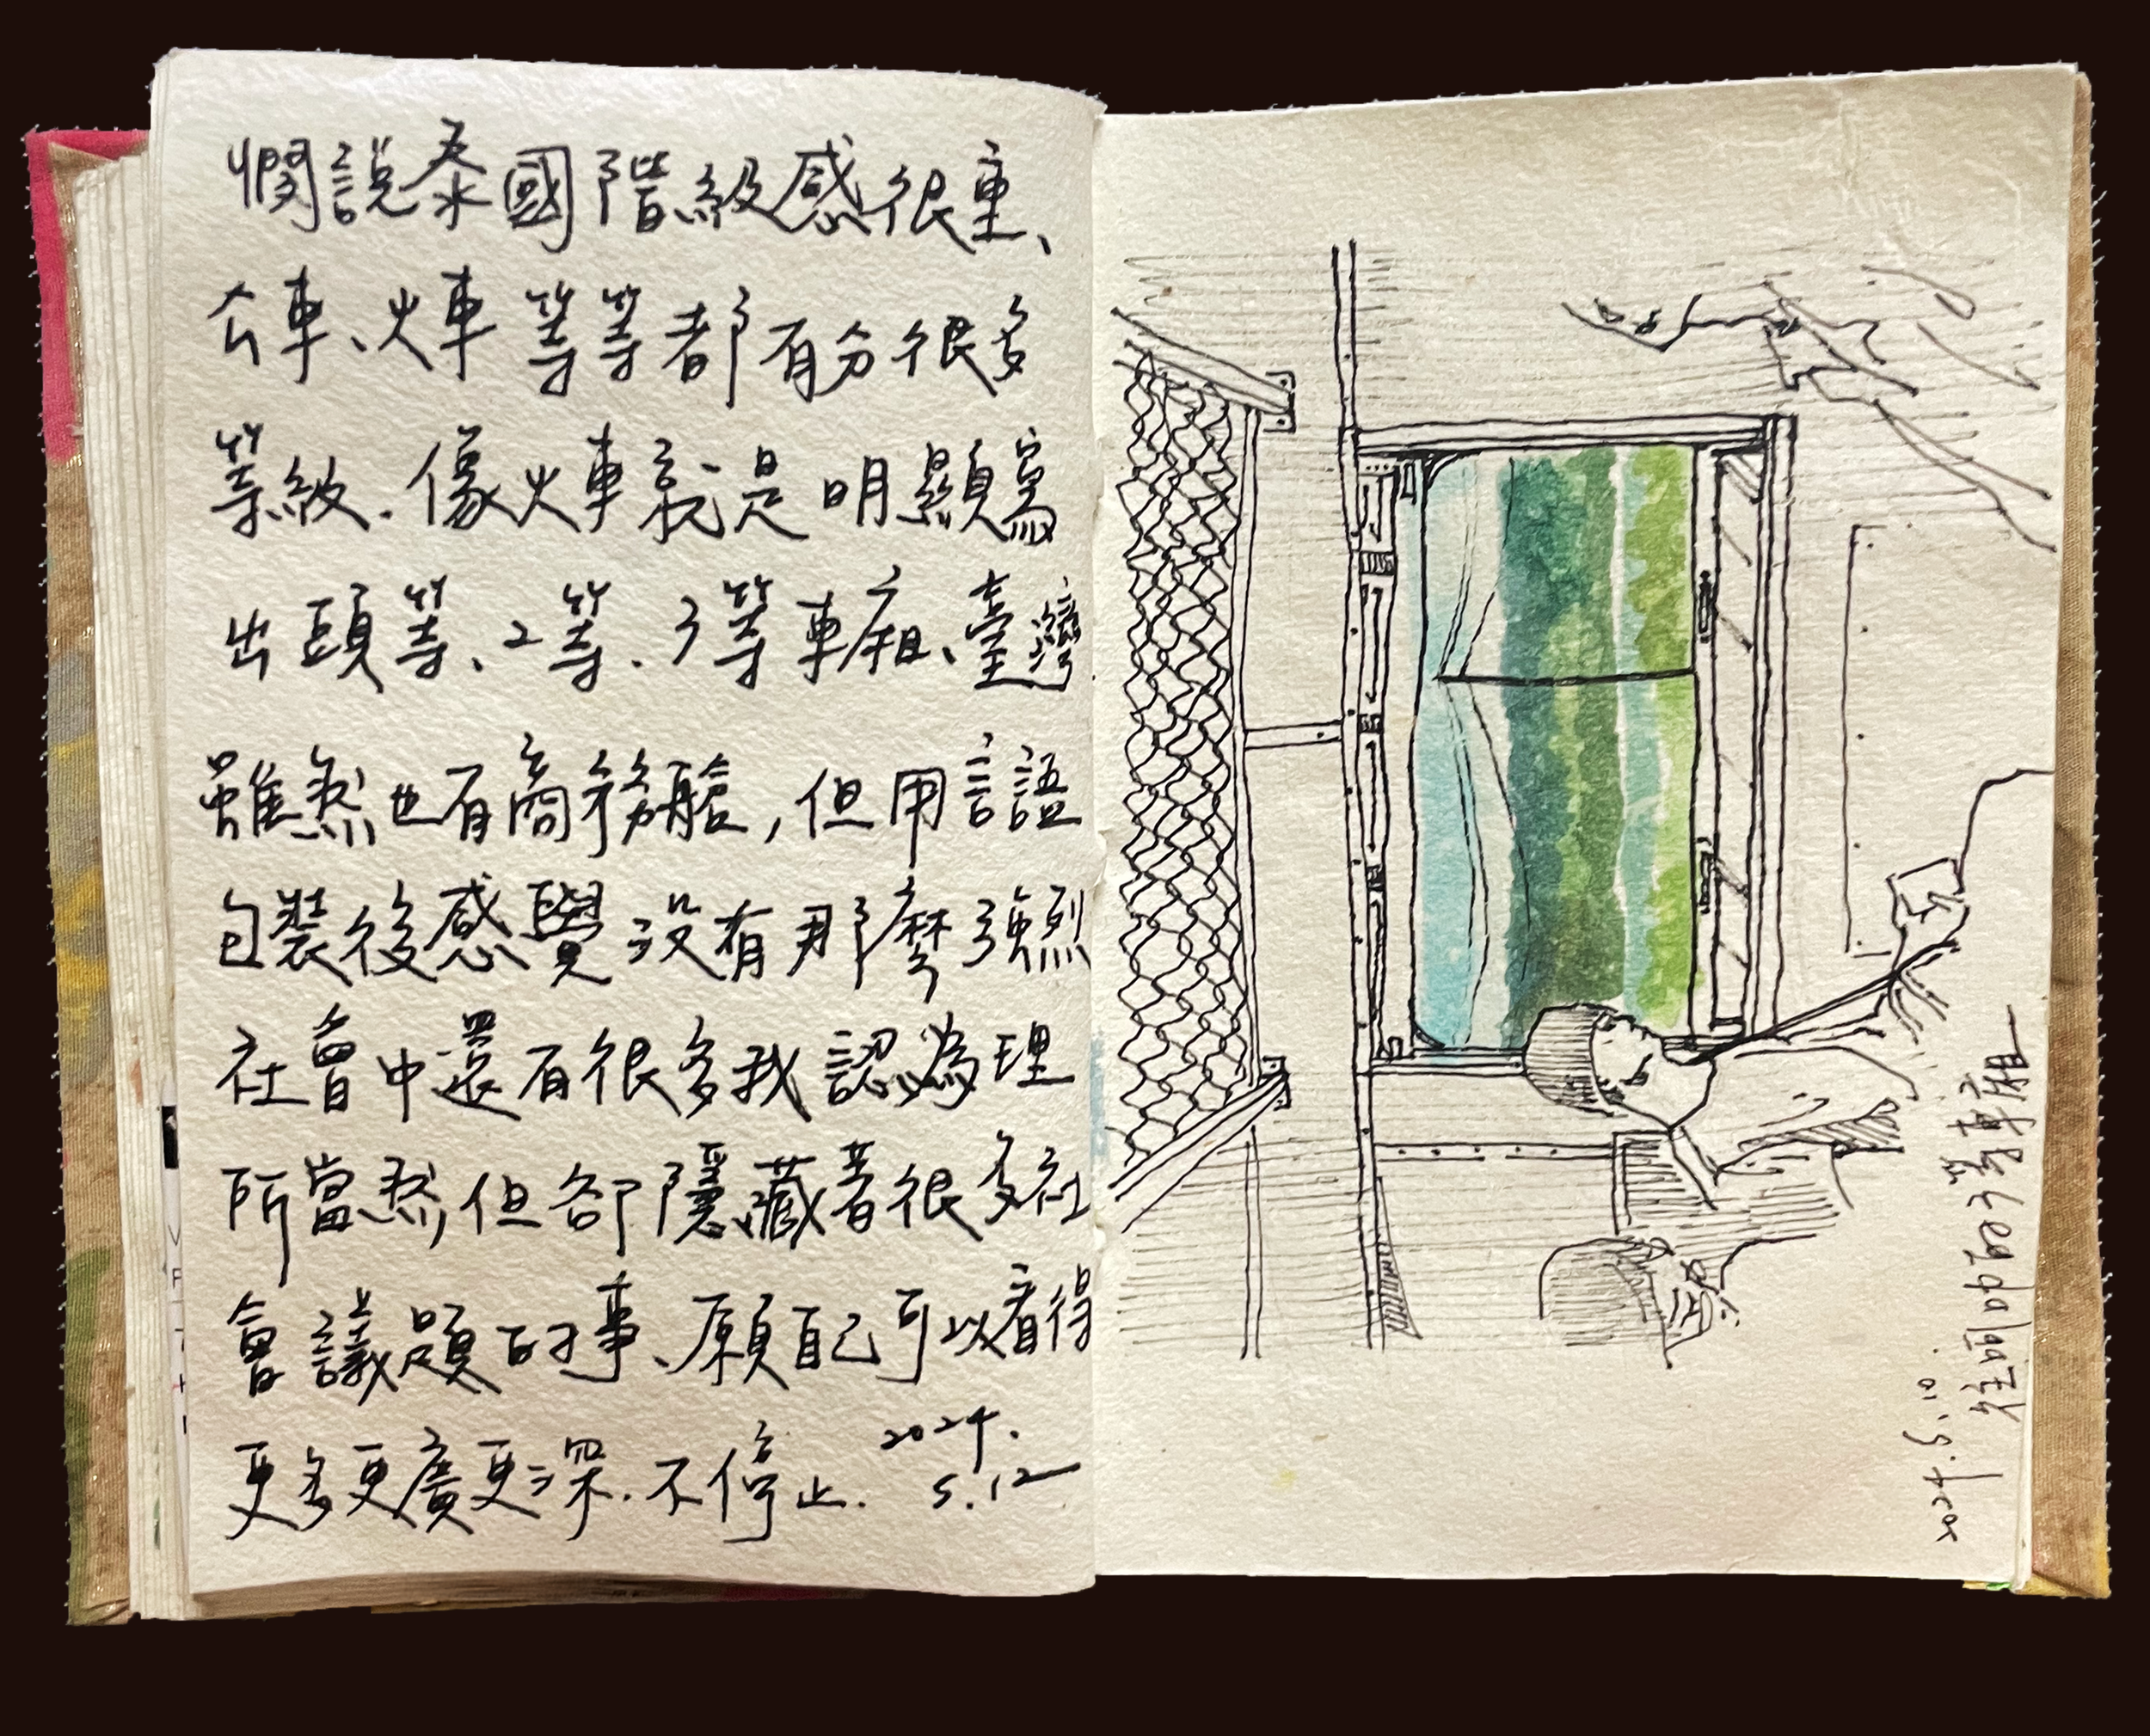 憫說泰國階級感很重、
公車、火車等等都有分很多
等級.像火車就是明顯寫
出頭等、2等、3等車廂、臺灣
雖然也有商務艙,但用言語
包裝後感覺沒有那麼強烈
社會中還有很多我認為理
所當然,但卻隱藏著很多社
會議題的事、願自己可以看得
更多更廣更深.不停止.
2024.
5.12